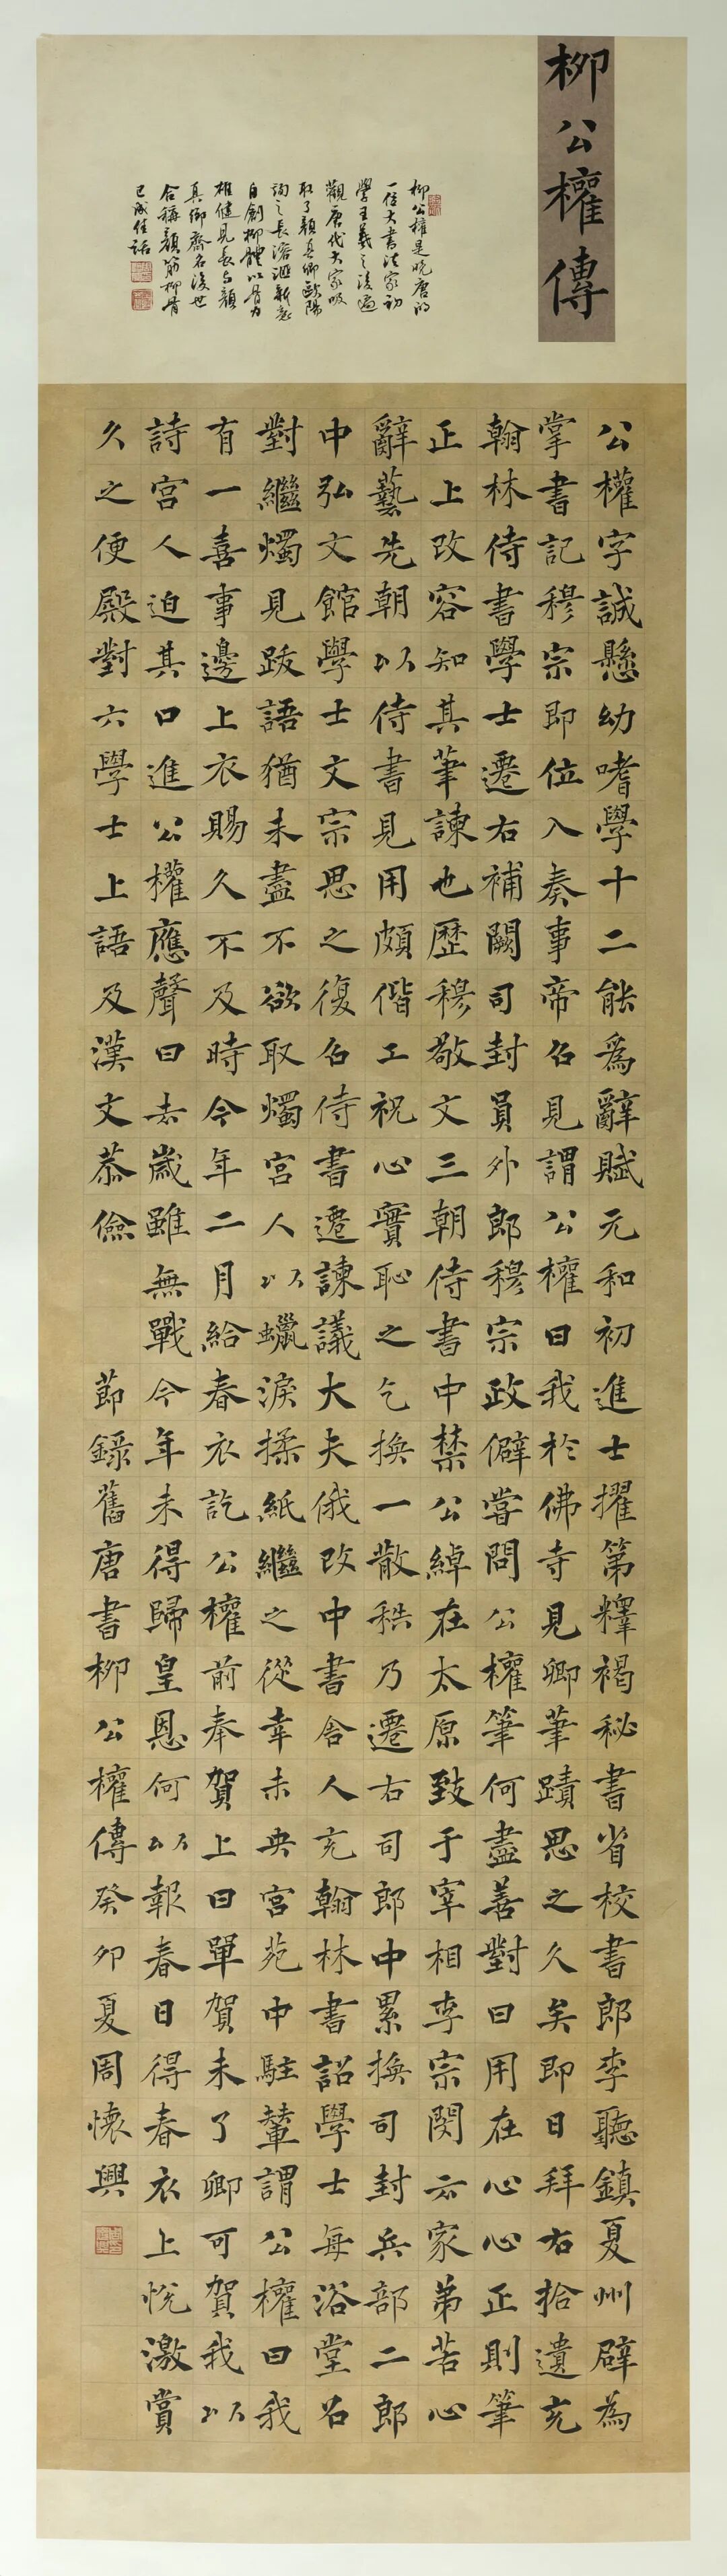 柳公權傳
柳公權是晚唐的
一位大書法家初
學王羲之後遍
觀唐代大家吸
取了顏真卿歐陽
詢之長溶滙新意
自創柳體以骨力
雄健見長與顏
真卿齊名後世
合稱顏筋柳骨
公權字誠懸幼嗜學十二能為辭賦元和初進士擢第釋褐秘書省校書郎李聽鎮夏州辟為
掌書記穆宗即位入奏事帝召見謂公權曰我於佛寺見卿筆蹟思之久矣即日拜右拾遺充
翰林侍書學士遷右補闕司封員外郎穆宗政僻嘗問公權筆何盡善對曰用在心心正則筆
正上改容知其筆諫也歷穆敬文三朝侍書中禁公綽在太原致于宰相李宗閔云家弟苦心
辭藝先朝以侍書見用頗偕工祝心實恥之乞換一散秩乃遷右司郎中累換司封兵部二郎
中弘文館學士文宗思之復召侍書遷諫議大夫俄改中書舍人充翰林書詔學士每浴堂召
對繼燭見跋語猶未盡不欲取燭宮人以蠟淚揉紙繼之從幸未央宮苑中駐輦謂公權曰我
有一喜事邊上衣賜久不及時今年二月給春衣訖公權前奉賀上曰單賀未了卿可賀我以
詩宮人迫其口進公權應聲曰去歲雖無戰今年未得歸皇恩何以報春日得春衣上悅激賞
久之便殿對六學士上語及漢文恭儉 節錄舊唐書柳公權傳癸卯夏周懷興